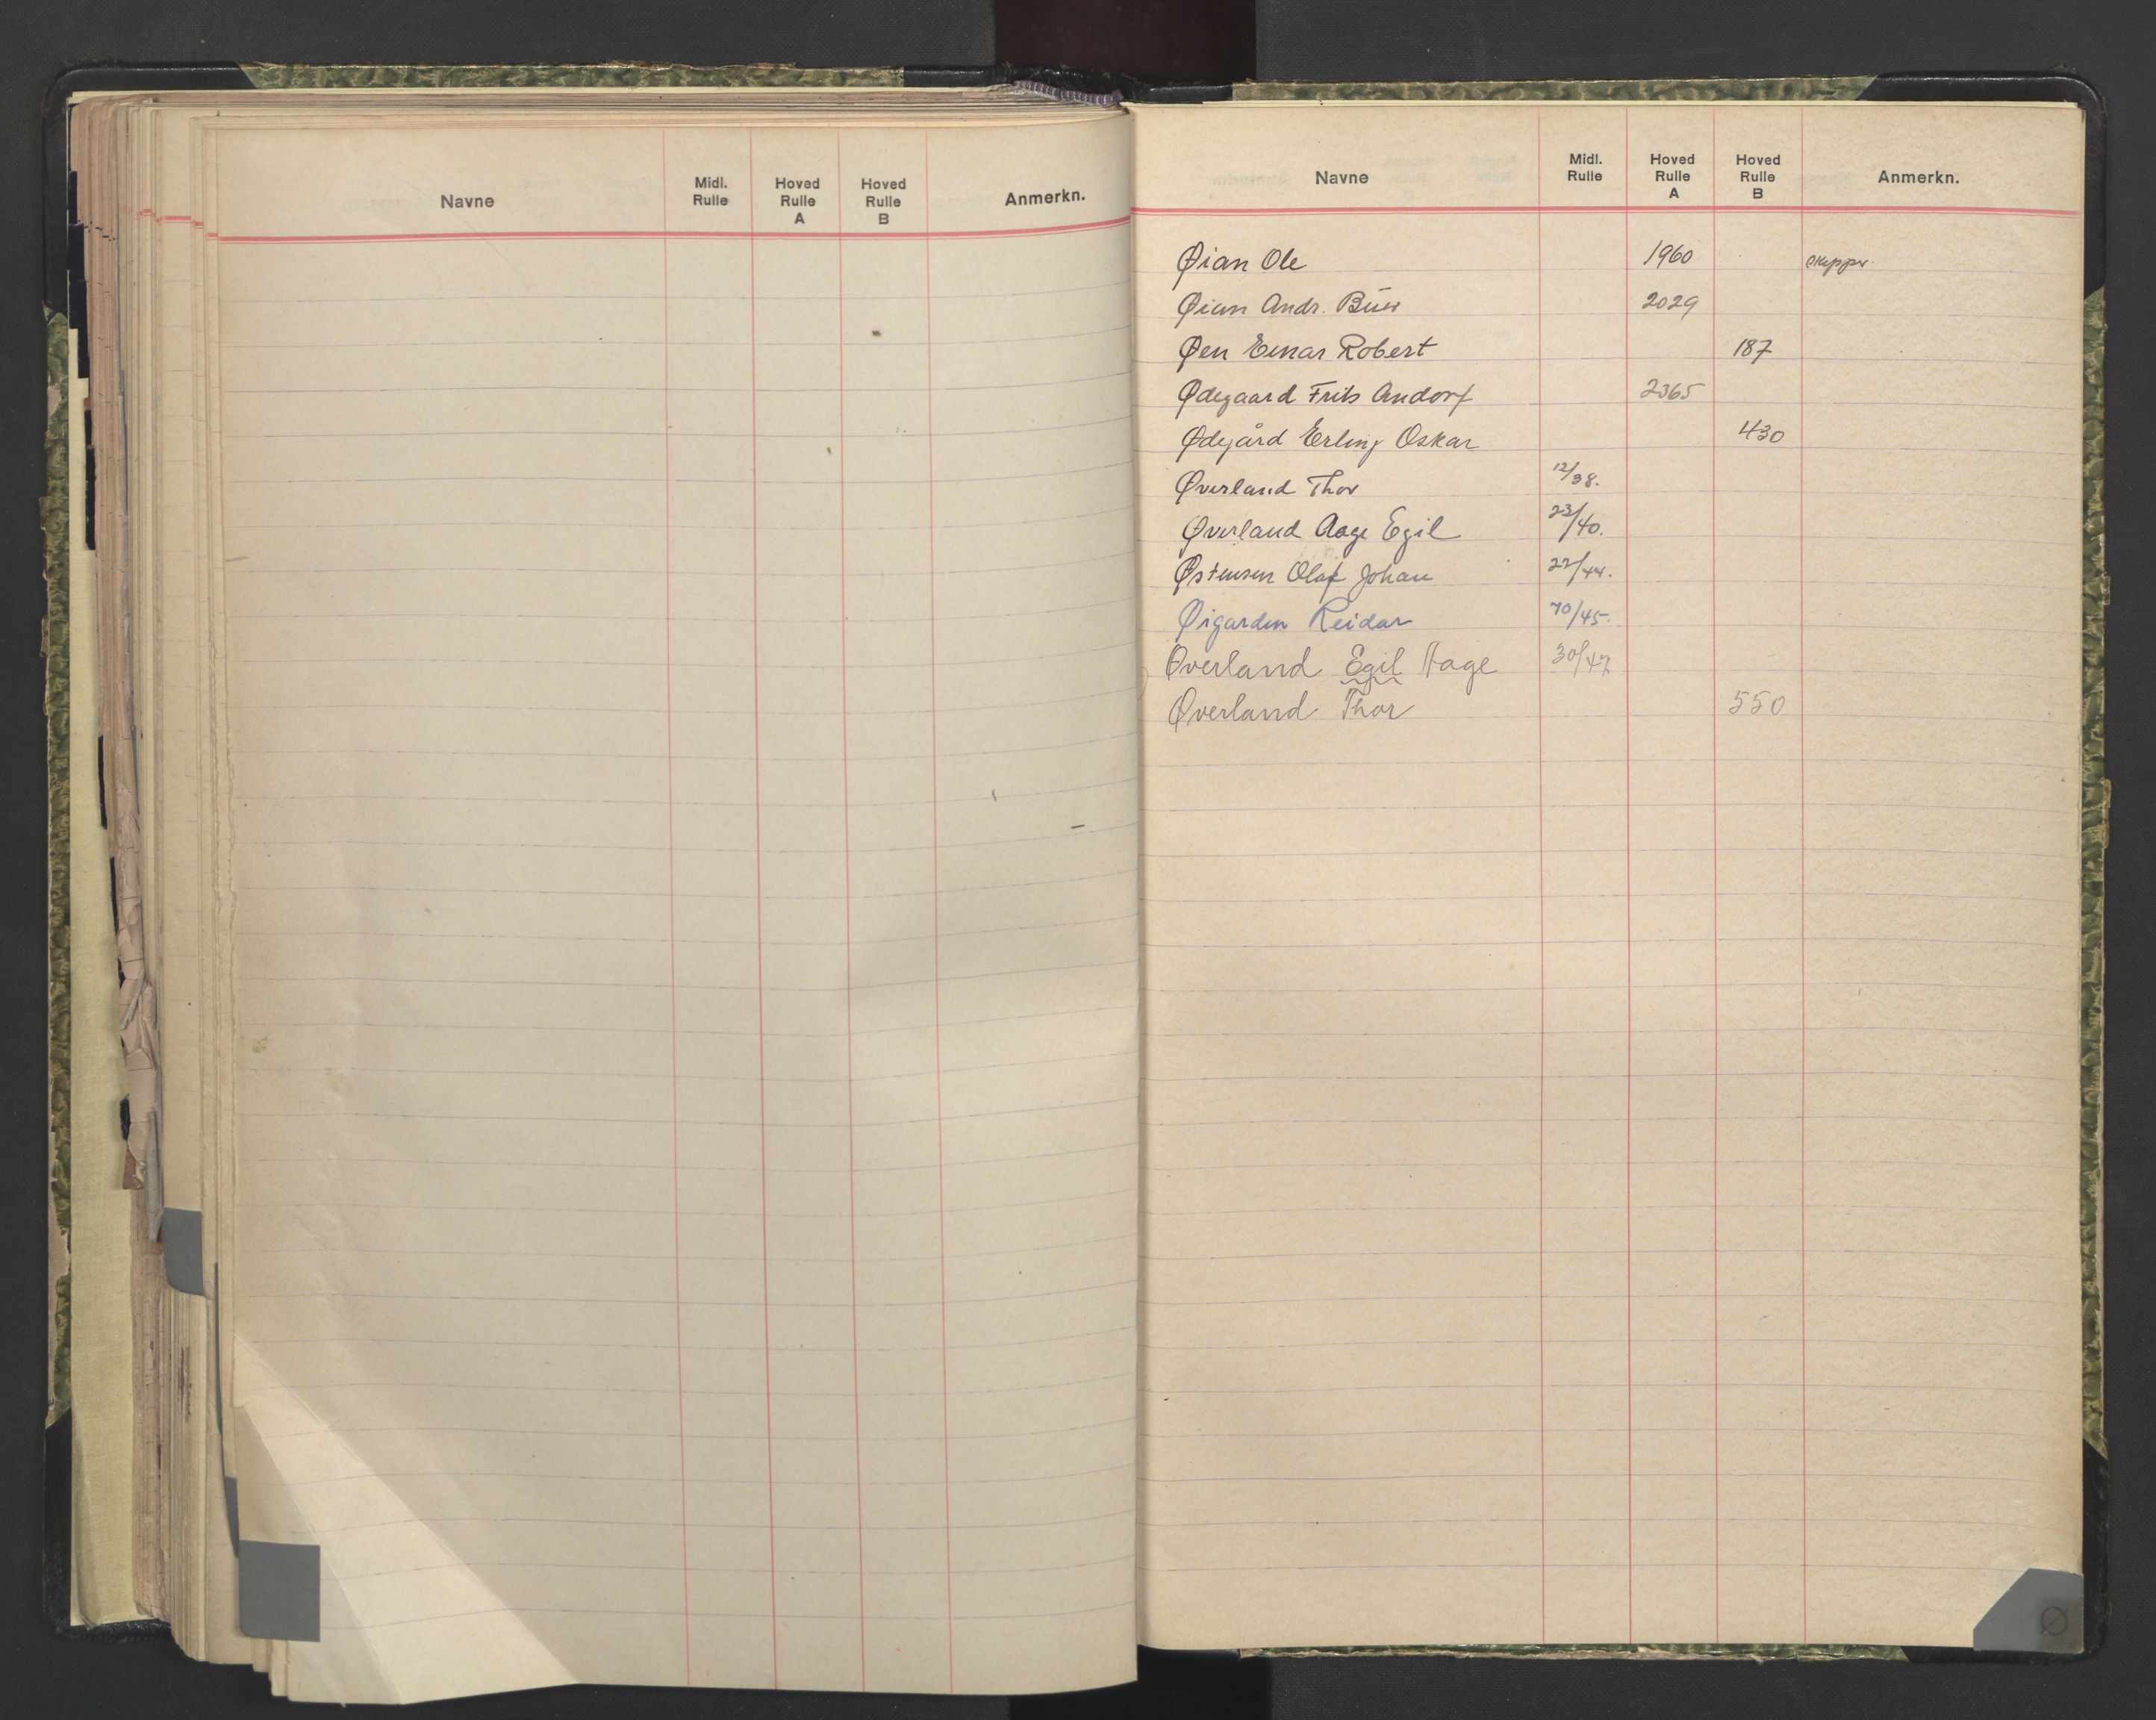 Navne Midl. Rulle Hoved Rulle A Hoved Rulle B Anmerkn.
Navne Midl. Rulle Hoved Rulle A Hoved Rulle B Anmerkn.
Øian Ole 1960 skipper
Øian Andr. 2029
Øen Einar Robert 187
Ødegaard Frits Andorf 2365
Ødegård Erling Oskar 430
Øverland Thor 12/38.
Øverland Aage Egil 23/40.
Østensen Olaf Johan 22/44.
Øigarden Reidar 70/45.
Øverland Egil Hage 30/47
Øverland Thor 550
Ø